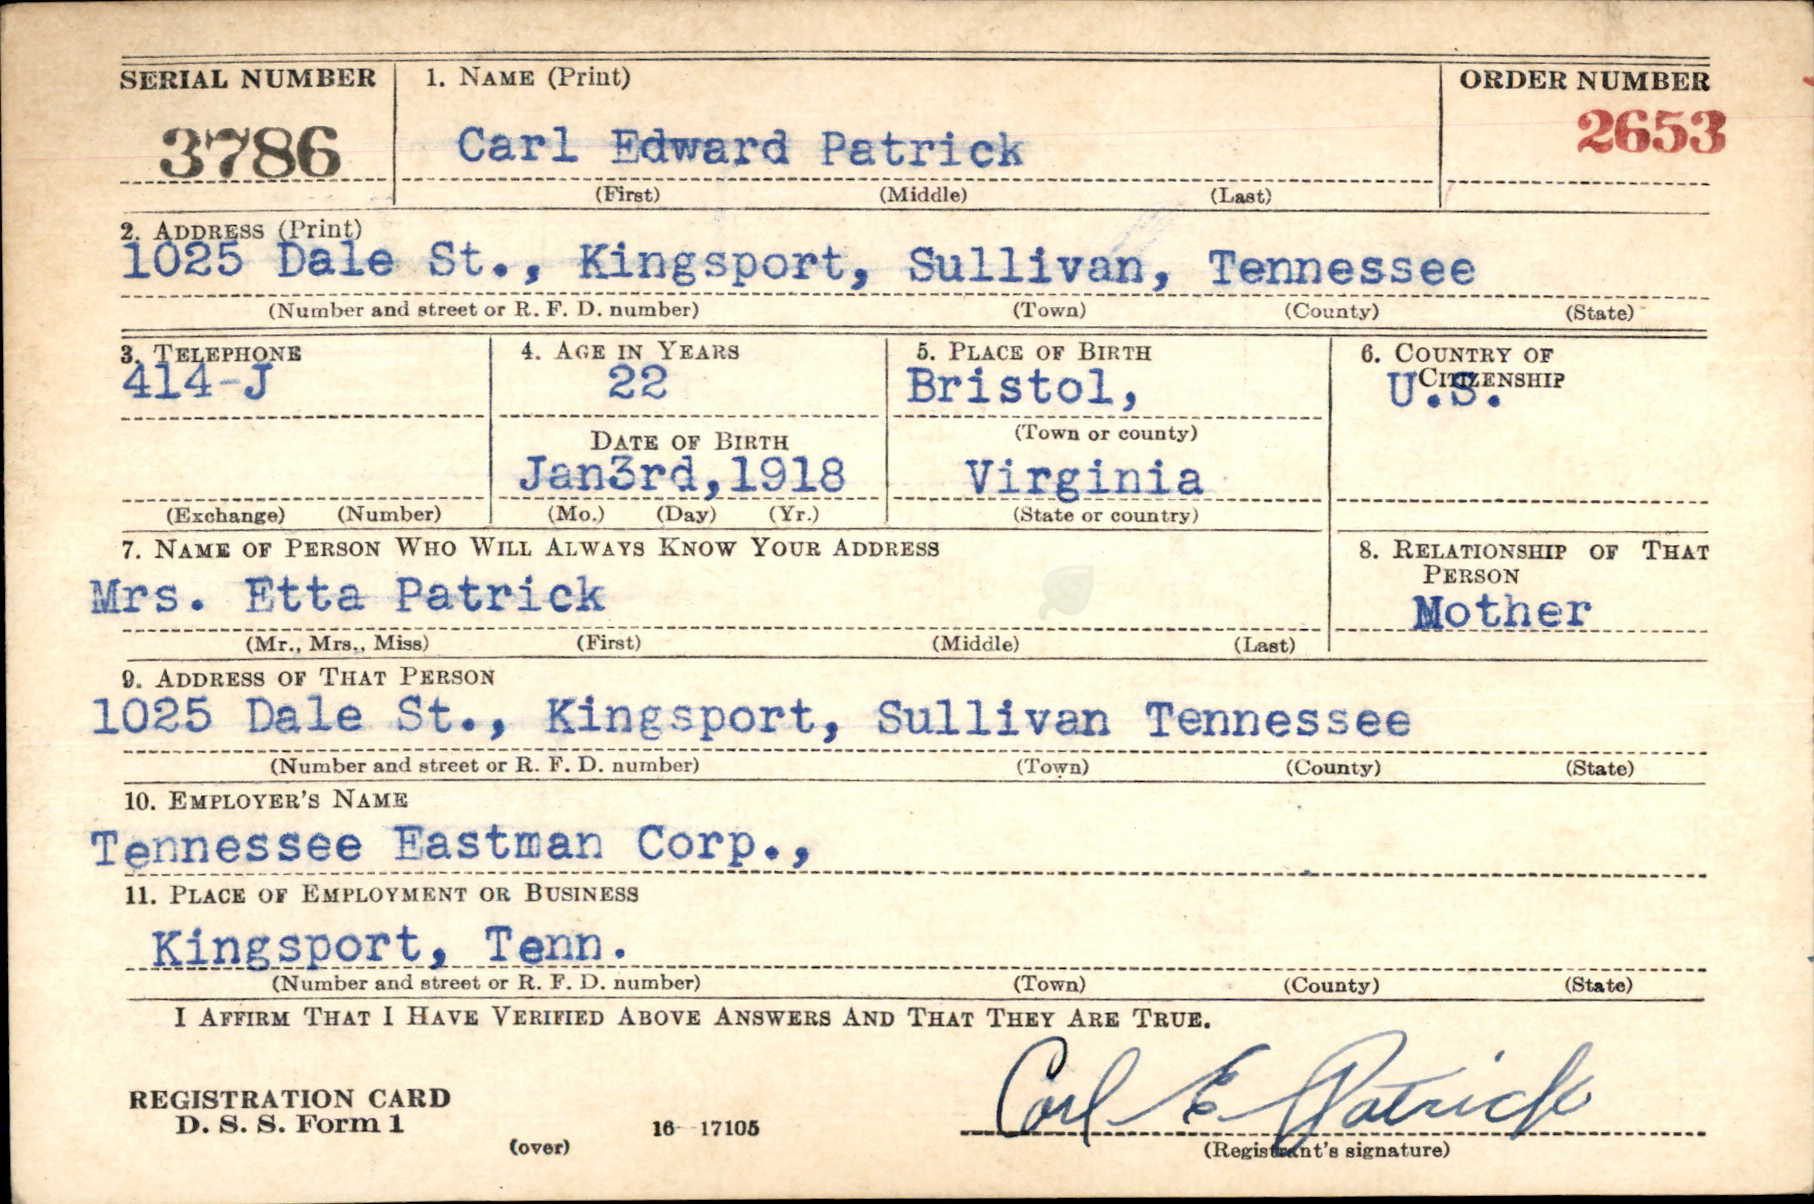 SERIAL NUMBER 1. NAME (Print) ORDER NUMBER
3786 Carl Edward Patrick 2653
(First) (Middle) (Last)
2. ADDRESS (Print)
1025 Dale St., Kingsport, Sullivan, Tennessee
(Number and street or R. F. D. number) (Town) (County) (State)
3. TELEPHONE 4. AGE IN YEARS 5. PLACE OF BIRTH 6. COUNTRY OF
CITIZENSHIP
414-J 22 Bristol, U.S.
DATE OF BIRTH (Town or county)
Jan3rd,1918 Virginia
(Exchange) (Number) (Mo.) (Day) (Yr.) (State or country)
7. NAME OF PERSON WHO WILL ALWAYS KNOW YOUR ADDRESS 8. RELATIONSHIP OF THAT
PERSON
Mrs. Etta Patrick Mother
(Mr., Mrs., Miss) (First) (Middle) (Last)
9. ADDRESS OF THAT PERSON
1025 Dale St., Kingsport, Sullivan Tennessee
(Number and street or R. F. D. number) (Town) (County) (State)
10. EMPLOYER'S NAME
Tennessee Eastman Corp.,
11. PLACE OF EMPLOYMENT OR BUSINESS
Kingsport, Tenn.
(Number and street or R. F. D. number) (Town) (County) (State)
I AFFIRM THAT I HAVE VERIFIED ABOVE ANSWERS AND THAT THEY ARE TRUE.
REGISTRATION CARD Carl E Patrick
D. S. S. Form 1
(over) 16-17105 (Registrant's signature)